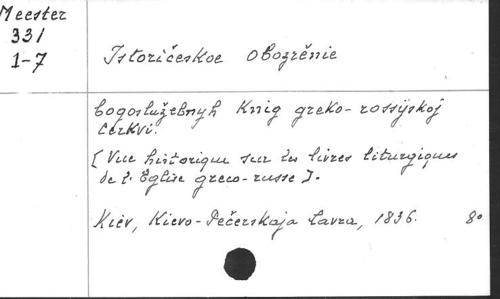 Meester
331
1-7
Istoričeskoe Obozrěnie
bogoslužebnyh Knig greko-rossijskoj
cerkvi.
[Vue historique sur les livres liturgiques
de l'Eglise greco-russe].
Kiev, Kievo-Pečerskaja Lavra, 1836. 8°